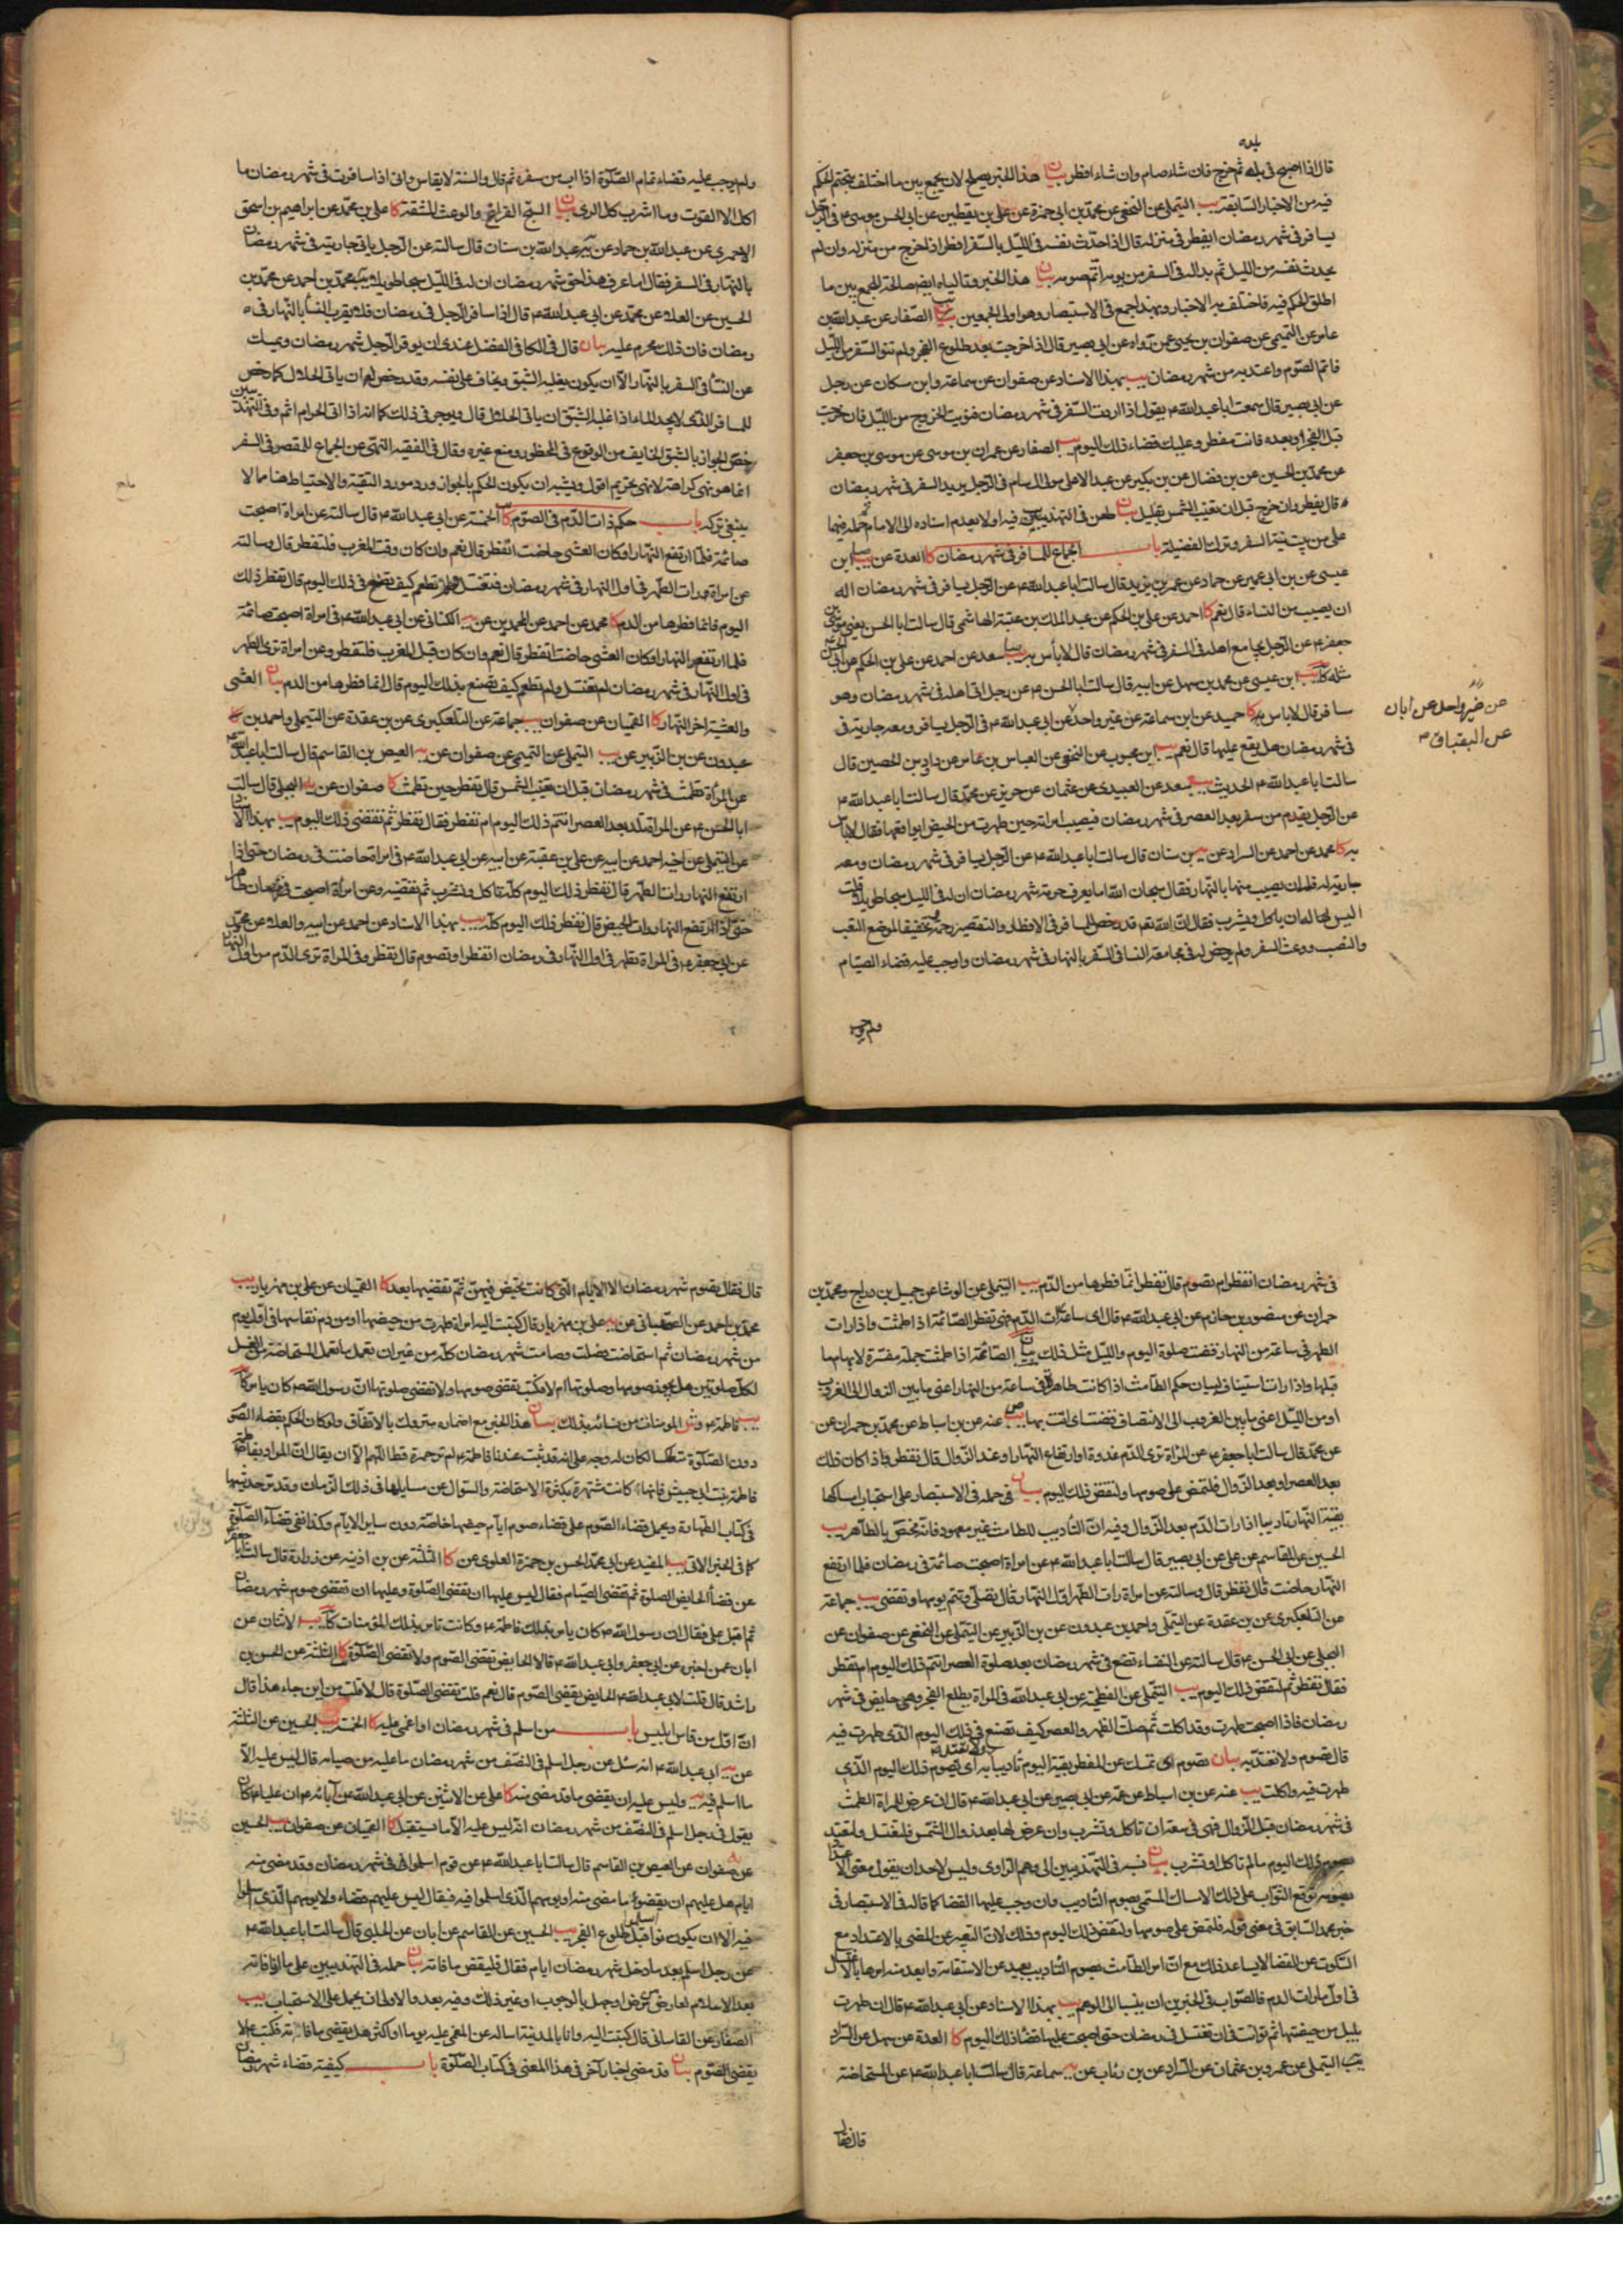 بلده
قال اذا اصبح فى بلده ثم خرج فان شاء صام وان شاء افطر بيان هذا الخبر يصلح لان يجمع بين ما اختلف
فيه من الاخبار السابقة يب التيملى عن النخعى عن محمد بن ابى حمزة عن على بن يقطين عن ابى الحسن موسى ع فى الرجل
يسافر فى شهر رمضان ايفطر فى منزله قال اذا حدث نفسه فى الليل بالسفر افطر اذا خرج من منزله وان لم
يحدث نفسه من الليل ثم بدا له فى السفر من يومه اتم صومه بيان هذا الخبر وتالياه ايضا صالحة للجمع بين ما
اطلق الحكم فيه فاختلف به الاخبار وبهذا جمع فى الاستبصار وهو اولى الجمعين الصفار عن عبد الله بن
عامر عن التميمى عن صفوان بن يحيى عمن رواه عن ابى بصير قال اذا خرجت بعد طلوع الفجر ولم تنو السفر من الليل
فاتم الصوم واعتد به من شهر رمضان يب بهذا الاسناد عن صفوان عن سماعة وابن مسكان عن رجل
عن ابى بصير قال سمعت ابا عبد الله ع يقول اذا اردت السفر فى شهر رمضان فنويت الخروج من الليل فان خرجت
قبل الفجر او بعده فانت مفطر وعليك قضاء ذلك اليوم يب الصفار عن عمران بن موسى عن موسى بن جعفر
عن محمد بن الحسين عن بن فضال عن بن بكير عن عبد الاعلى مولى ال سام فى الرجل يريد السفر فى شهر رمضان
قال يفطر وان خرج قبل ان تغيب الشمس بقليل بيان طعن فى التهذيبين فيه اولا بعدم اسناده الى الامام
على من بيت نية السفر وترك الفضيلة باب الجماع للمسافر فى شهر رمضان كا العدة عن
عيسى عن بن ابى عمير عن حماد عن عمر بن يزيد قال سالت ابا عبد الله ع عن الرجل يسافر فى شهر رمضان اله
ان يصيب من النساء قال نعم كا احمد عن على بن الحكم عن عبد الملك بن عتبة الهاشمى قال سالت ابا الحسن يعنى موسى
جعفر ع عن الرجل يجامع اهله فى السفر فى شهر رمضان قال لا بأس به سعد عن احمد عن على بن الحكم عن ابى الحسن
مثله بن عيسى عن محمد بن سهل عن ابيه قال سالت ابا الحسن ع عن رجل اتى اهله فى شهر رمضان وهو
مسافر قال لا باس به كا حميد عن ابن سماعة عن غير واحد عن ابى عبد الله ع فى الرجل يسافر ومعه جارية فى
عن غير واحد عن ابان
عن البقباق
شهر رمضان هل يقع عليها قال نعم يب ابن محبوب عن النخعى عن العباس بن عامر عن داود بن الحصين قال
سالت ابا عبد الله ع الحديث يب سعد عن العبيدى عن عثمان عن حريز عن محمد قال سالت ابا عبد الله ع
عن الرجل يقدم من سفر بعد العصر فى شهر رمضان فيصيب امراته حين طهرت من الحيض ايواقعها فقال لا بأس
به كا محمد عن احمد عن السراد عن بن سنان قال سالت ابا عبد الله ع عن الرجل يسافر فى شهر رمضان ومعه
جارية له فله ان يصيب منها بالنهار فقال سبحان الله اما يعرف حرمة شهر رمضان ان له فى الليل سبحا طويلا قلت
اليس له ان ياكل ويشرب فقال ان الله تعالى قد رخص للمسافر فى الافطار والتقصير رحمة وتخفيفا لموضع التعب
والنصب ووعث السفر ولم يرخص له فى مجامعة النساء فى السفر بالنهار فى شهر رمضان واوجب عليه قضاء الصيام
ولم يوجب
ولم يوجب عليه قضاء تمام الصلوة اذا اب من سفره ثم قال والسنة لا يقاس وانى اذا سافرت فى شهر رمضان ما
اكل الا القوت وما اشرب كل الرى بيان السبح الفراغ والوعث المشقة كا على بن محمد عن ابراهيم بن اسحق
الاحمرى عن عبد الله بن حماد عن عبد الله بن سنان قال سالته عن الرجل ياتى جاريته فى شهر رمضان
بالنهار فى السفر فقال اما عرف هذا حق شهر رمضان ان له فى الليل سبحا طويلا محمد بن احمد عن محمد بن
الحسين عن العلاء عن محمد عن ابى عبد الله ع قال اذا سافر الرجل فى رمضان فلا يقرب النساء بالنهار فى
رمضان فان ذلك محرم عليه بيان قال فى الكافى الفضل عندى ان يوقر الرجل شهر رمضان ويمسك
عن النساء فى السفر بالنهار الا ان يكون يغلبه الشبق ويخاف على نفسه وقد رخص له ان ياتى الحلال كما رخص
للمسافر الذى لا يجد الماء اذا غلبه الشبق ان ياتى الحلال قال ويوجر فى ذلك كما انه اذا اتى الحرام اثم وفى التهذيبين
خص الجواز بالشبق الخايف من الوقوع فى المحظور ومنع غيره وقال فى الفقيه النهى عن الجماع للمقصر فى السفر
انما هو نهى كراهة لا نهى تحريم اقول ويشبه ان يكون الحكم بالجواز ورد مورد التقية والاحتياط هنا مما لا
ينبغى تركه باب حكم ذات الدم فى الصوم كا الخمسة عن ابى عبد الله ع قال سالته عن امراة اصبحت
صائمة فلما ارتفع النهار او كان العشى حاضت اتفطر قال نعم وان كان وقت المغرب فلتفطر قال وسالته
عن امراة رات الطهر فى اول النهار فى شهر رمضان فتغتسل ولم تطعم كيف تصنع فى ذلك اليوم قال تفطر ذلك
اليوم فانما فطرها من الدم كا محمد عن احمد عن المحمدين عن الكنانى عن ابى عبد الله ع فى امراة اصبحت صائمة
فلما ارتفع النهار او كان العشى حاضت اتفطر قال نعم وان كان قبل المغرب فلتفطر وعن امراة ترى الطهر
فى اول النهار فى شهر رمضان لم تغتسل ولم تطعم كيف تصنع بذلك اليوم قال انما فطرها من الدم بيان العشى
والعشية اخر النهار كا القميان عن صفوان يب جماعة عن التلعكبرى عن بن عقدة عن التيملى واحمد بن
عبدون عن بن الزبير عن يب التيملى عن التميمى عن صفوان عن العيص بن القاسم قال سالت ابا عبد الله ع
عن المراة تطمث فى شهر رمضان قبل ان تغيب الشمس قال تفطر حين تطمث كا صفوان عن البجلى قال سالت
ابا الحسن ع عن المراة تلد بعد العصر اتتم ذلك اليوم ام تفطر فقال تفطر ثم تقضى ذلك اليوم يب بهذا الاسناد
عن التيملى عن اخيه احمد عن ابيه عن على بن عقبة عن ابيه عن ابى عبد الله ع فى امراة حاضت فى رمضان حتى اذا
ارتفع النهار رات الطهر قال تفطر ذلك اليوم كله تاكل وتشرب ثم تقضيه وعن امراة اصبحت فى رمضان طاهرا
حتى اذا ارتفع النهار رات الحيض قال تفطر ذلك اليوم كله يب بهذا الاسناد عن احمد عن ابيه والعلاء عن محمد
عن ابى جعفر ع فى المراة تطهر فى اول النهار فى رمضان اتفطر او تصوم قال تفطر وفى المراة ترى الدم من اول النهار
فى شهر رمضان اتفطر ام تصوم قال تفطر انما فطرها من الدم يب التيملى عن الوشا عن جميل بن دراج ومحمد بن
حمران عن منصور بن حازم عن ابى عبد الله ع قال اى ساعة رات الدم فهى تفطر الصائمة اذا طمثت واذا رات
الطهر فى ساعة من النهار قضت صلوة اليوم والليل مثل ذلك بيان الصائمة اذا طمثت جملة مفسرة لابهام ما
قبلها واذا رات استيناف لبيان حكم الطامث اذا كانت طاهرة فى ساعة من النهار اعنى ما بين الزوال الى الغروب
او من الليل اعنى ما بين الغروب الى الانتصاف قضت اى اتت بها يب عنه عن بن اسباط عن محمد بن حمران عن
عن محمد قال سالت ابا جعفر ع عن المراة ترى الدم غدوة او ارتفاع النهار او عند الزوال قال تفطر واذا كان ذلك
بعد العصر او بعد الزوال فلتمض على صومها ولتقض ذلك اليوم بيان حمله فى الاستبصار على استحباب امساكها
بقية النهار تاديبا اذا رات الدم بعد الزوال وفيه ان التاديب للطامث غير معهود فانه مختص بالطاهر يب
الحسين عن القاسم عن على عن ابى بصير قال سالت ابا عبد الله ع عن امراة اصبحت صائمة فى رمضان فلما ارتفع
النهار حاضت قال تفطر قال وسالته عن امراة رات الطهر اول النهار قال تصلى وتتم يومها وتقضى يب جماعة
عن التلعكبرى عن بن عقدة عن التيملى واحمد بن عبدون عن بن الزبير عن التيملى عن النخعى عن صفوان عن
البجلى عن ابى الحسن ع قال سالته عن النفساء تضع فى شهر رمضان بعد صلوة العصر اتتم ذلك اليوم ام تفطر
فقال تفطر ثم لتقض ذلك اليوم يب التيملى عن الفطحية عن ابى عبد الله فى المراة يطلع الفجر وهى حايض فى شهر
رمضان فاذا اصبحت طهرت وقد اكلت ثم صلت الظهر والعصر كيف تصنع فى ذلك اليوم الذى طهرت فيه
قال تصوم ولا تعتد به بيان تصوم اى تمسك عن المفطر بقية اليوم تأديبا به اى بصوم ذلك اليوم الذى
طهرت فيه واكلت يب عنه عن بن اسباط عن عمه عن ابى بصير عن ابى عبد الله ع قال ان عرض للمراة الطمث
فى شهر رمضان قبل الزوال فهى فى سعة ان تاكل وتشرب وان عرض لها بعد زوال الشمس فلتغتسل ولتعتد
بصوم ذلك اليوم ما لم تاكل او تشرب بيان نسبه فى التهذيبين الى وهم الراوى وليس لاحد ان يقول معنى الاعتداد
بصومه توقع الثواب على ذلك الامساك المسمى بصوم التاديب وان وجب عليها القضا كما قاله فى الاستبصار فى
خبر محمد السابق فى معنى قوله فلتمض على صومها ولتقض ذلك اليوم وذلك لان التعبير عن المضى بالاعتداد مع
السكوت عن القضا لا يساعد ذلك مع ان امر الطامث بصوم التاديب بعيد عن الاستقامة وابعد منه امرها بالاغتسال
فى اول ما رات الدم فالصواب فى الخبرين ان ينسبا الى الوهم يب بهذا الاسناد عن ابى عبد الله ع قال ان طهرت
بليل من حيضتها ثم توانت فى ان تغتسل فى رمضان حتى اصبحت عليها قضاء ذلك اليوم كا العدة عن سهل عن السراد
يب التيملى عن عمرو بن عثمان عن السراد عن بن رئاب عن سماعة قال سالت ابا عبد الله ع عن المستحاضة
قال فقال
قال فقال تصوم شهر رمضان الا الايام التى كانت تحيض فيهن ثم تقضيها بعد كا القميان عن على بن مهزيار يب
محمد بن احمد عن الصهبانى عن على بن مهزيار قال كتبت اليه امراة طهرت من حيضها او من دم نفاسها فى اول يوم
من شهر رمضان ثم استحاضت فصلت وصامت شهر رمضان كله من غير ان تعمل ما تعمل المستحاضة من الغسل
لكل صلوتين هل يجوز صومها وصلوتها ام لا فكتب تقضى صومها ولا تقضى صلوتها ان رسول الله ص كان يامر
فاطمة ع والمومنات من نسائه بذلك بيان هذا الخبر مع اضماره متروك بالاتفاق ولو كان الحكم بقضاء الصوم
دون الصلوة متعاكسا لكان له وجه على انه قد ثبت عندنا ان فاطمة ع لم تر حمرة قط اللهم الا ان يقال ان المراد بفاطمة
فاطمة بنت ابى حبيش فانها كانت شهرة بكثرة الاستحاضة والسوال عن مسايلها فى ذلك الزمان وقد مر حديثها
فى كتاب الطهارة ويحمل قضاء الصوم على قضاء صوم ايام حيضها خاصة دون ساير الايام وكذا نفى قضاء الصلوة
كما فى الخبر الاتى يب المفيد عن ابى محمد الحسن بن حمزة العلوى عن كا الثلثة عن بن اذينه عن زرارة قال سالت ابا جعفر
عن قضاء الحايض الصلوة ثم تقضى الصيام فقال ليس عليها ان تقضى الصلوة وعليها ان تقضى صوم شهر رمضان
ثم اقبل على فقال ان رسول الله ص كان يامر بذلك فاطمة ع وكانت تامر بذلك المؤمنات الاثنان عن
ابان عمن اخبره عن ابى جعفر وابى عبد الله ع قالا الحايض تقضى الصوم ولا تقضى الصلوة كا الثلثة عن الحسن بن
راشد قال قلت لابى عبد الله ع الحايض تقضى الصوم قال نعم قلت تقضى الصلوة قال لا قلت من اين جاء هذا قال
ان اول من قاس ابليس باب من اسلم فى شهر رمضان او اغمى عليه كا الخمسة يب الحسين عن الثلثة
عن ابى عبد الله ع انه سئل عن رجل اسلم فى النصف من شهر رمضان ما عليه من صيامه قال ليس عليه الا
ما اسلم فيه وليس عليه ان يقضى ما قد مضى منه كا على عن الاثنين عن ابى عبد الله عن آبائه ع ان عليا ع كان
يقول فى رجل اسلم فى النصف من شهر رمضان انه ليس عليه الا ما يستقبل كا القميان عن صفوان يب الحسين
عن صفوان عن العيص بن القاسم قال سالت ابا عبد الله ع عن قوم اسلموا فى شهر رمضان وقد مضى منه
ايام هل عليهم ان يقضوا ما مضى منه او يومهم الذى اسلموا فيه فقال ليس عليهم قضاء ولا يومهم الذى اسلموا
فيه الا ان يكونوا اسلموا قبل طلوع الفجر يب الحسين عن القاسم عن ابان عن الحلبى قال سالت ابا عبد الله ع
عن رجل اسلم بعد ما دخل شهر رمضان ايام فقال فليقض ما فاته بيان حمله فى التهذيبين على ما فاته
بعد الاسلام لعارض مرض او جهل بالوجوب او غير ذلك وفيه بعد والاولى ان يحمل على الاستحباب يب
الصفار عن القاسانى قال كتبت اليه وانا بالمدينة اساله عن المغمى عليه يوما او اكثر هل يقضى ما فاته فكتب ع لا
يقضى الصوم بيان قد مضى اخبار آخر فى هذا المعنى فى كتاب الصلوة باب كيفية قضاء شهر رمضان